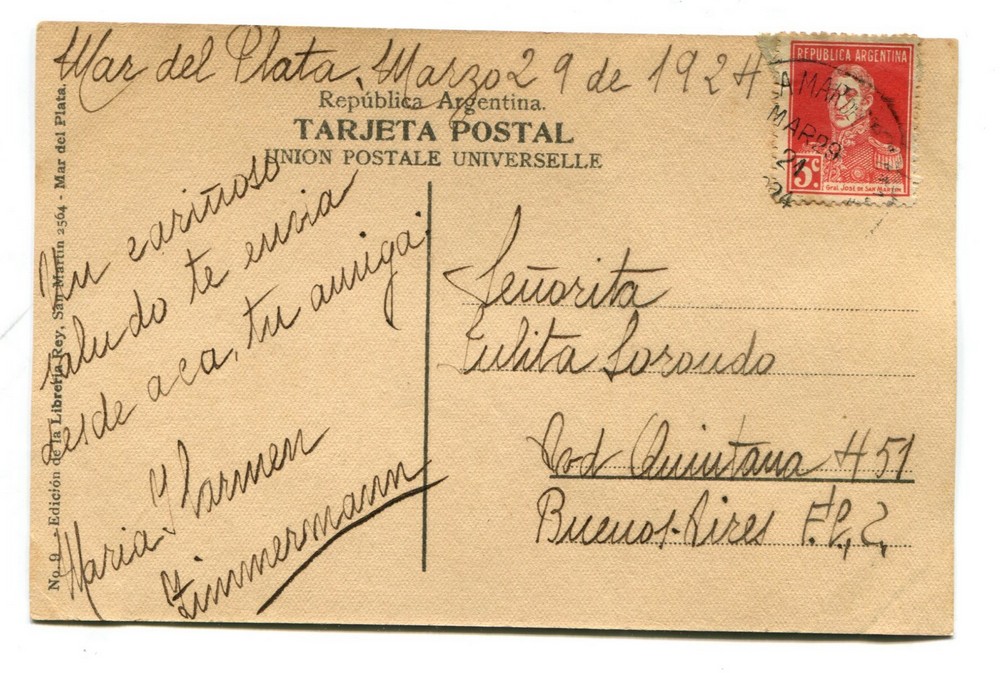 Mar del Plata, Marzo 29 de 1924
República Argentina.
TARJETA POSTAL
UNION POSTALE UNIVERSELLE
REPUBLICA ARGENTINA
MAR 29
21
5c.
Gral. José de San Martín
Un cariñoso
saludo te envia
desde aca, tu amiga.
Maria Carmen
Zimmermann
Señorita
Julita
Quintana 451
Buenos Aires
No. 9 - Edición de la Librería Rey, San Martín 2564 - Mar del Plata.